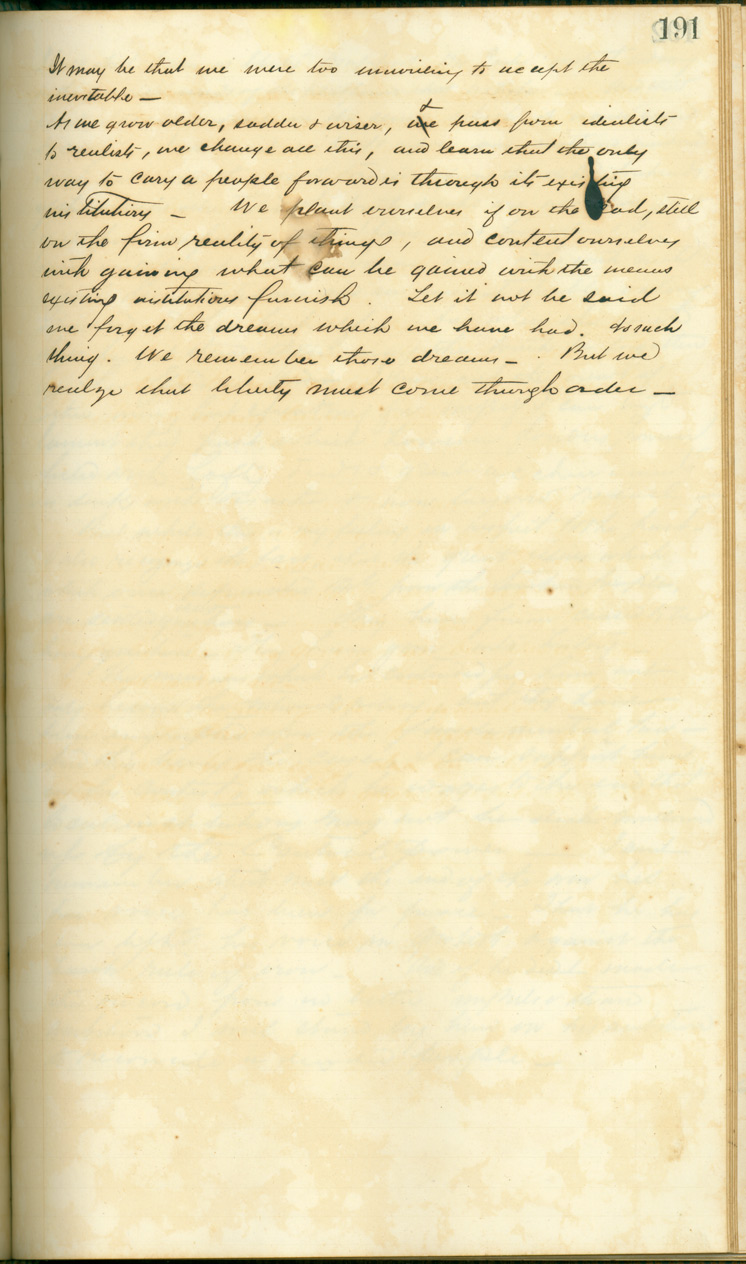 191
It may be that we were too unwilling to accept the
inevitable —
As we grow older, sadder & wiser, & pass from idealists
to realists, we change all this, and learn that the only
way to cary a people forward is through its existing
institutions — We plant ourselves if on the sad, still
on the firm reality of things, and content ourselves
with gaining what can be gained with the means
existing institutions furnish. Let it not be said
we forget the dreams which we have had. No such
thing. We remember those dreams — . But we
realize that liberty must come through order —